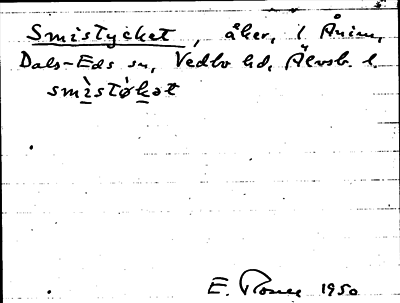 Smistycket, åker, 1 Ånim,
Dals-Eds sn, Vedbo hd, Älvsb. l.
smìstø̀kət
E. 1950